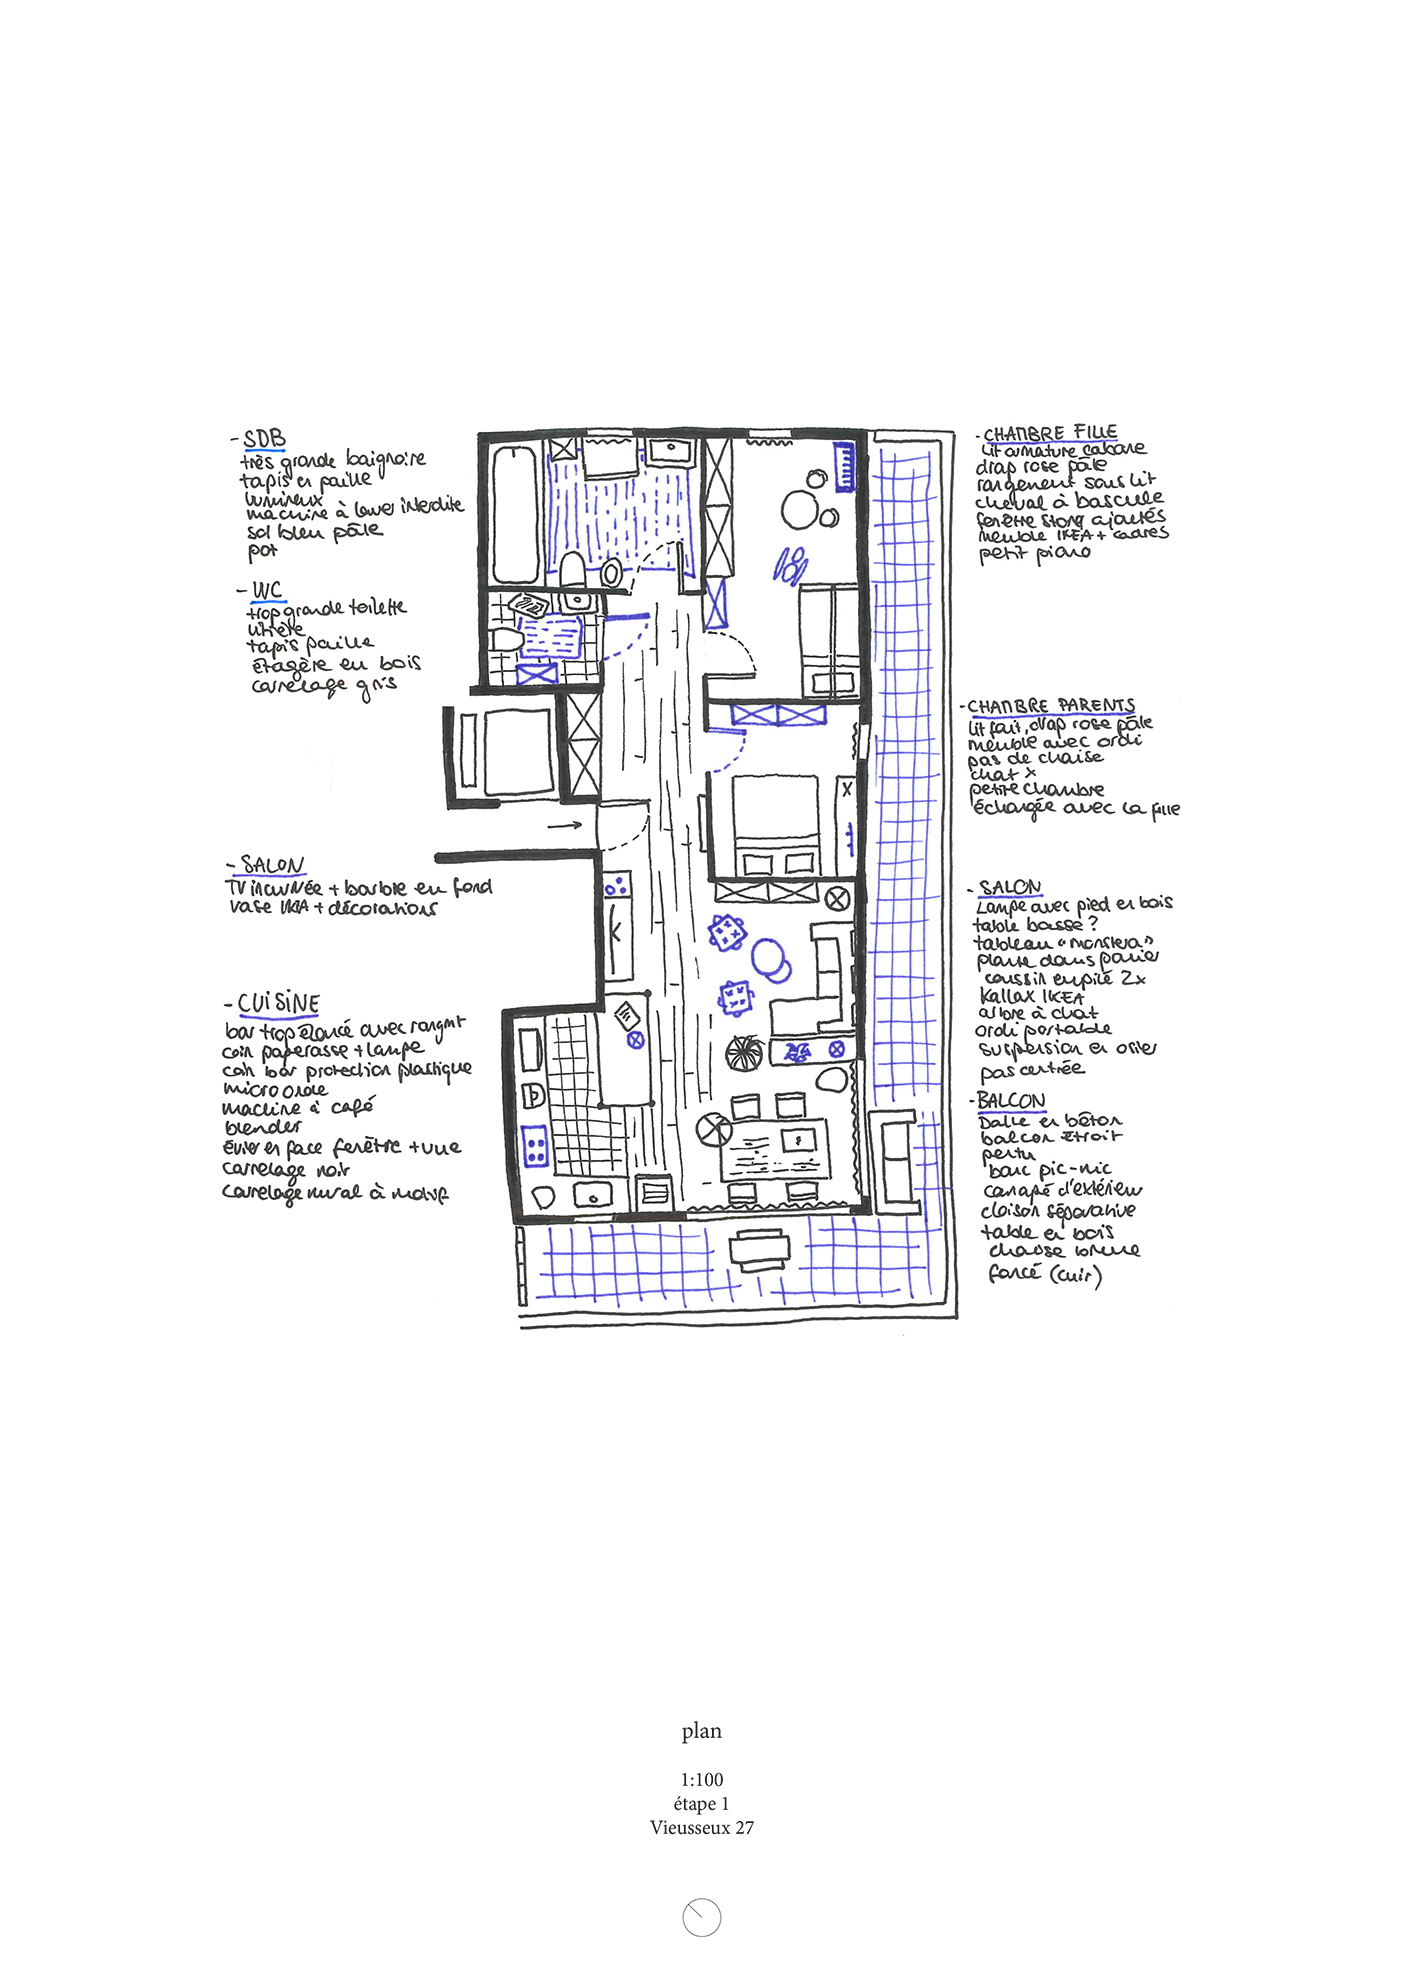 - SDB
très grande baignoire
tapis en paille
lumineux
machine à laver interdite
sol bleu pâle
pot
- WC
trop grande toilette
litière
tapis paille
étagère en bois
carrelage gris
- SALON
TV incurvée + barbie en fond
vase IKEA + décorations
- CUISINE
bar trop élancé avec rangmt
coin paperasse + lampe
coin bar protection plastique
micro onde
machine à café
blender
évier en face fenêtre + vue
carrelage noir
carrelage mural à motif
- CHAMBRE FILLE
lit armature cabane
drap rose pâle
rangement sous lit
cheval à bascule
fenêtre stong ajoutés
meuble IKEA + cadres
petit piano
- CHAMBRE PARENTS
lit fait, drap rose pâle
meuble avec ordi
pas de chaise
chat x
petite chambre
échangée avec la fille
- SALON
Lampe avec pied en bois
table basse ?
tableau "monstera"
plante dans panier
coussin empilé 2x
kallax IKEA
arbre à chat
ordi portable
suspension en osier
pas centrée
- BALCON
Dalle en béton
balcon étroit
pentu
banc pic-nic
canapé d'extérieur
cloison séparative
table en bois
chaise brune
foncé (cuir)
plan
1:100
étape 1
Vieusseux 27